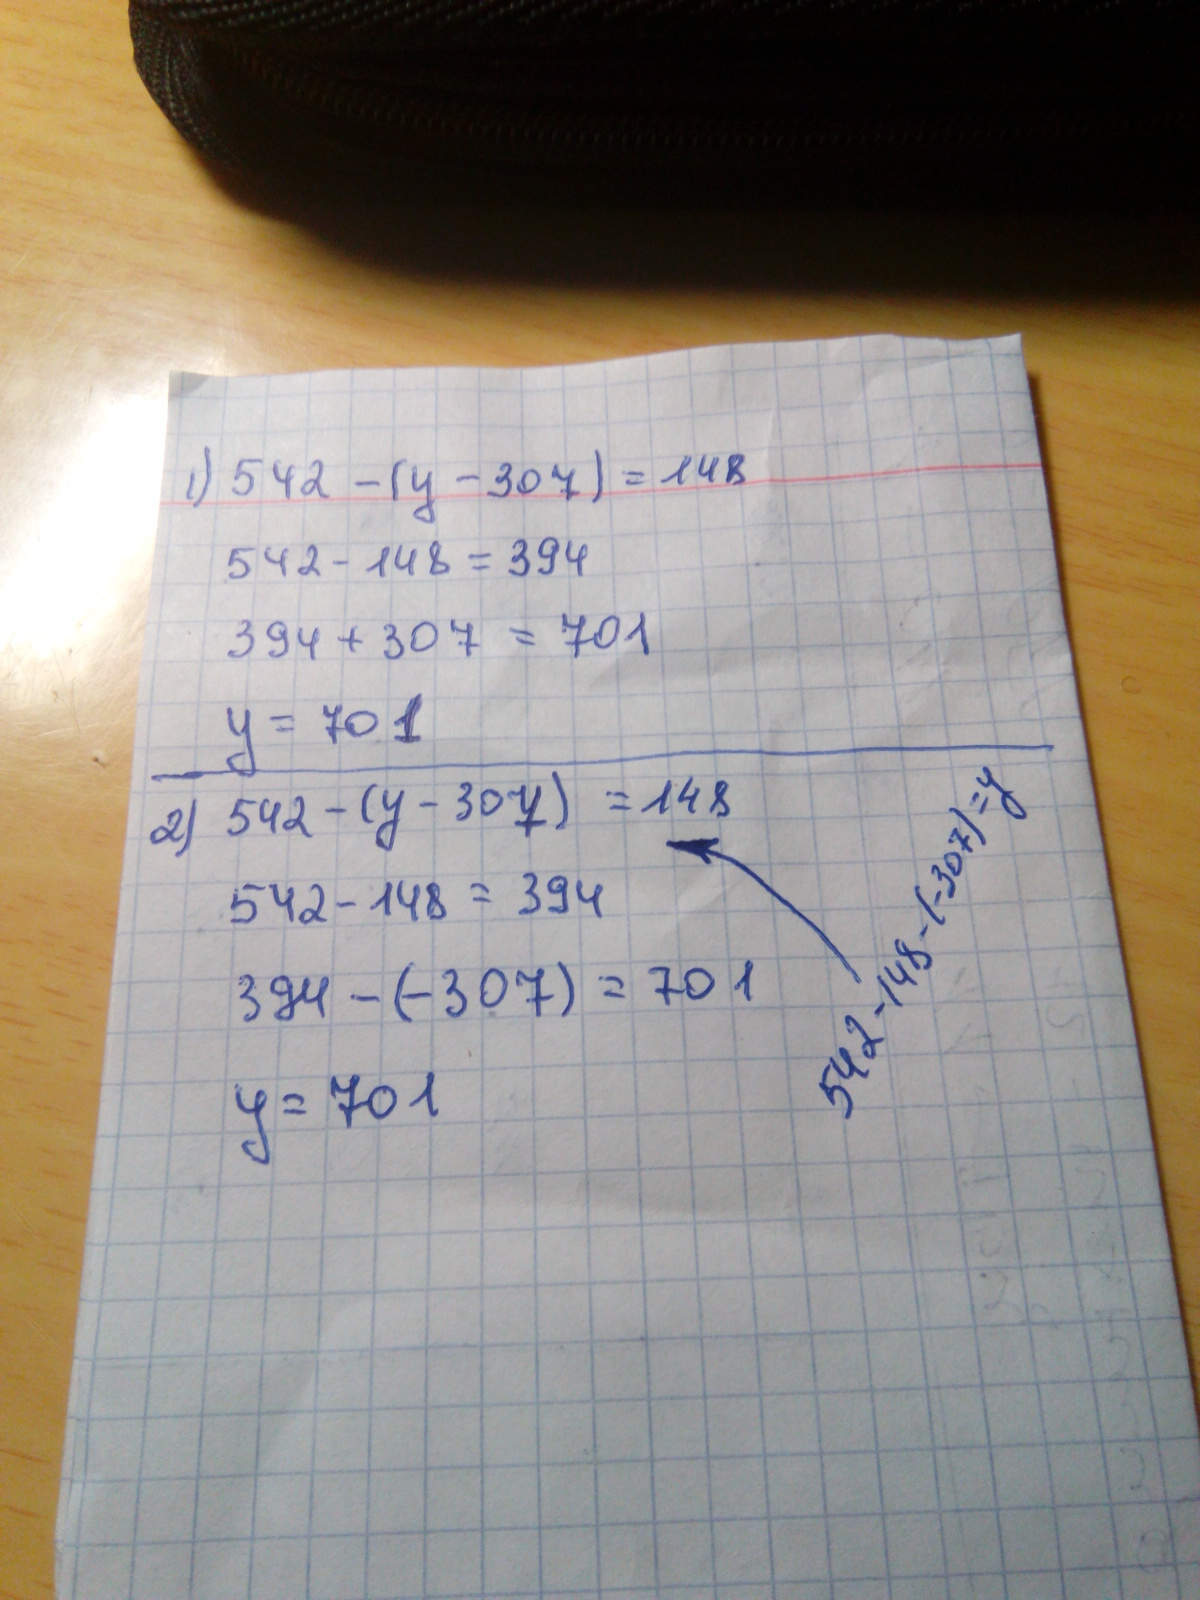 1) 542 - (y - 307) = 148
542 - 148 = 394
394 + 307 = 701
y = 701
2) 542 - (y - 307) = 148
542 - 148 = 394
394 - (-307) = 701
y = 701
542 - 148 - (-307) = y